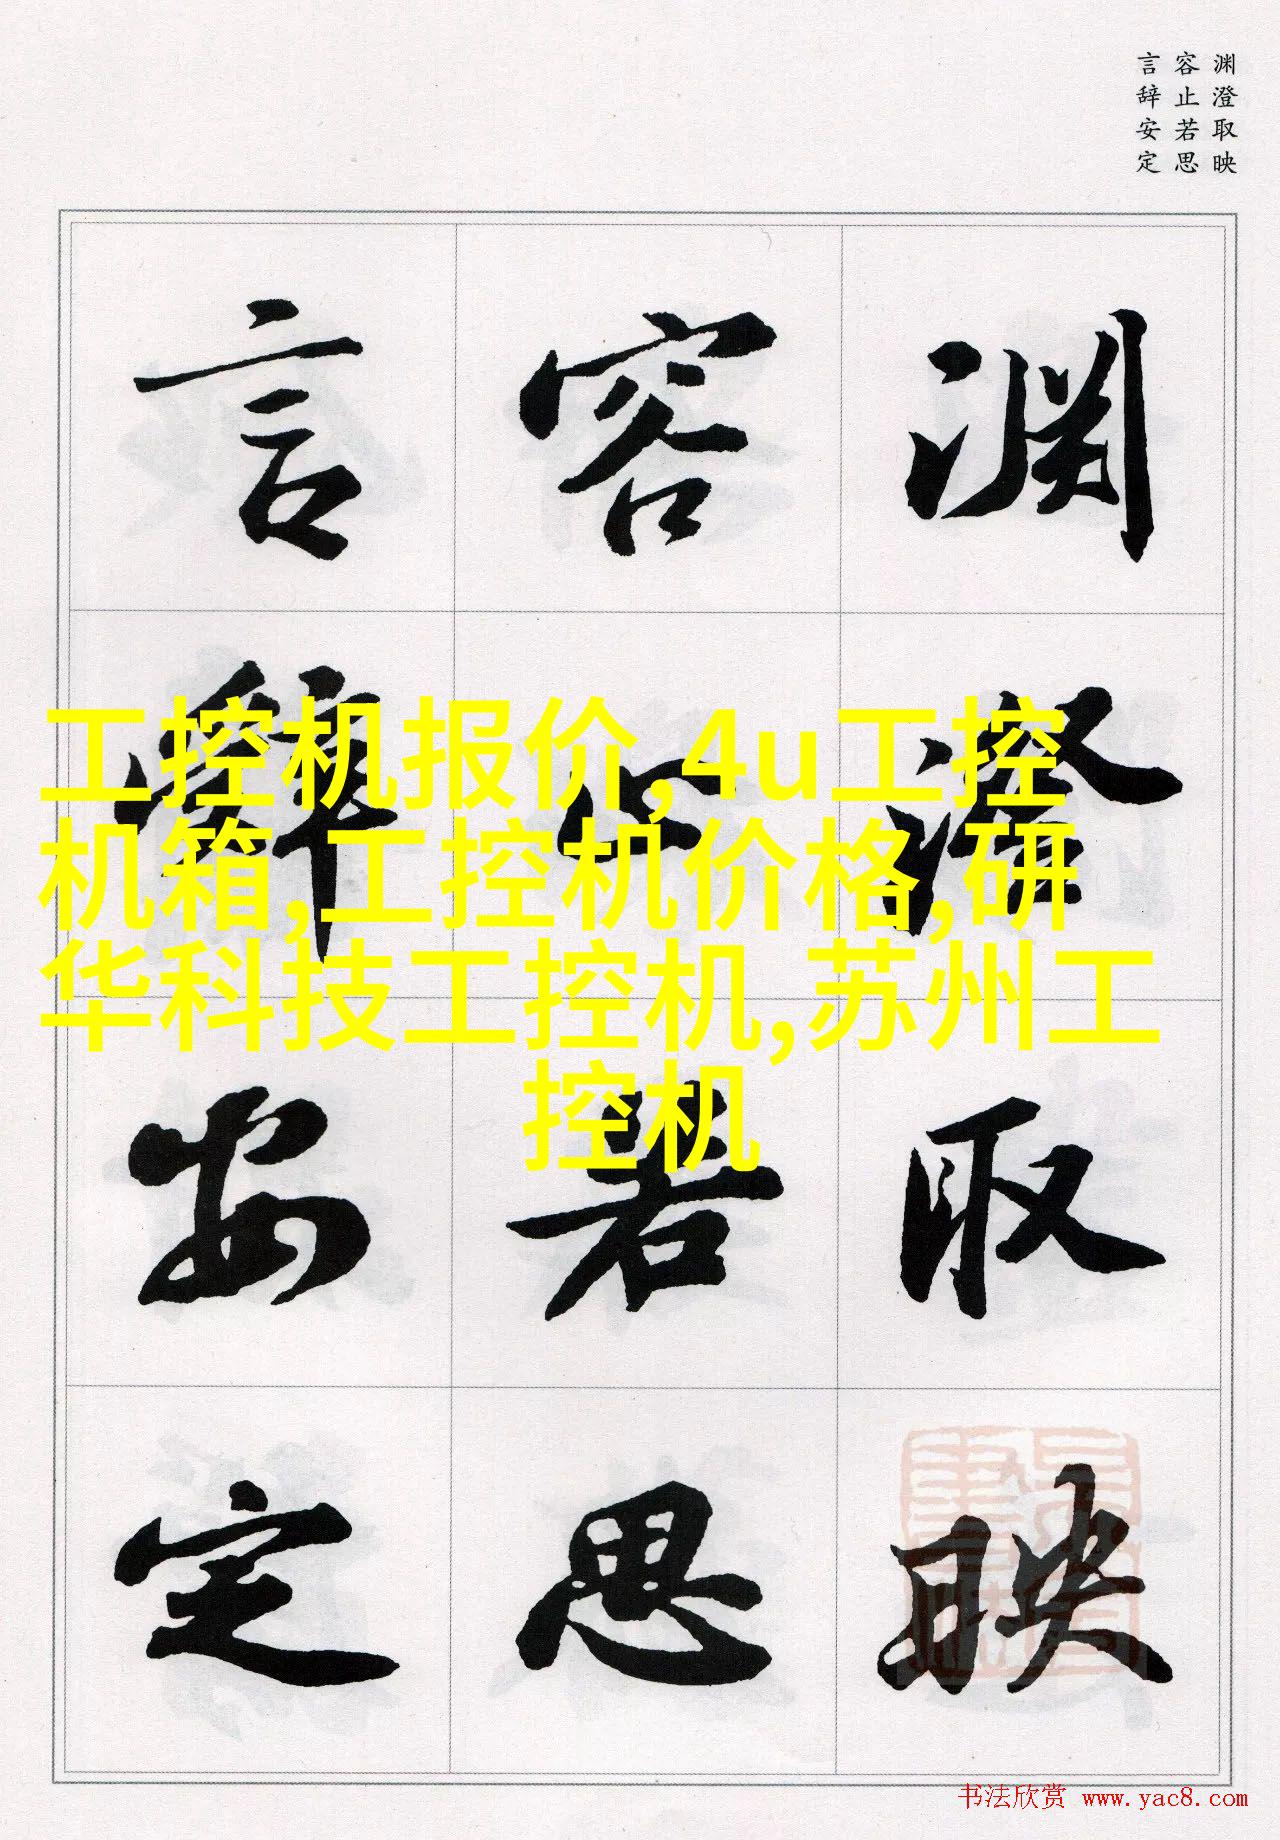 渊澄取映
容止若思
言辞安定
渊澄取映
容止若思
言辞安定
工控机报价,4u工控
机箱,工控机价格,研
华科技工控机,苏州工
控机
书法欣赏 www.yac8.com